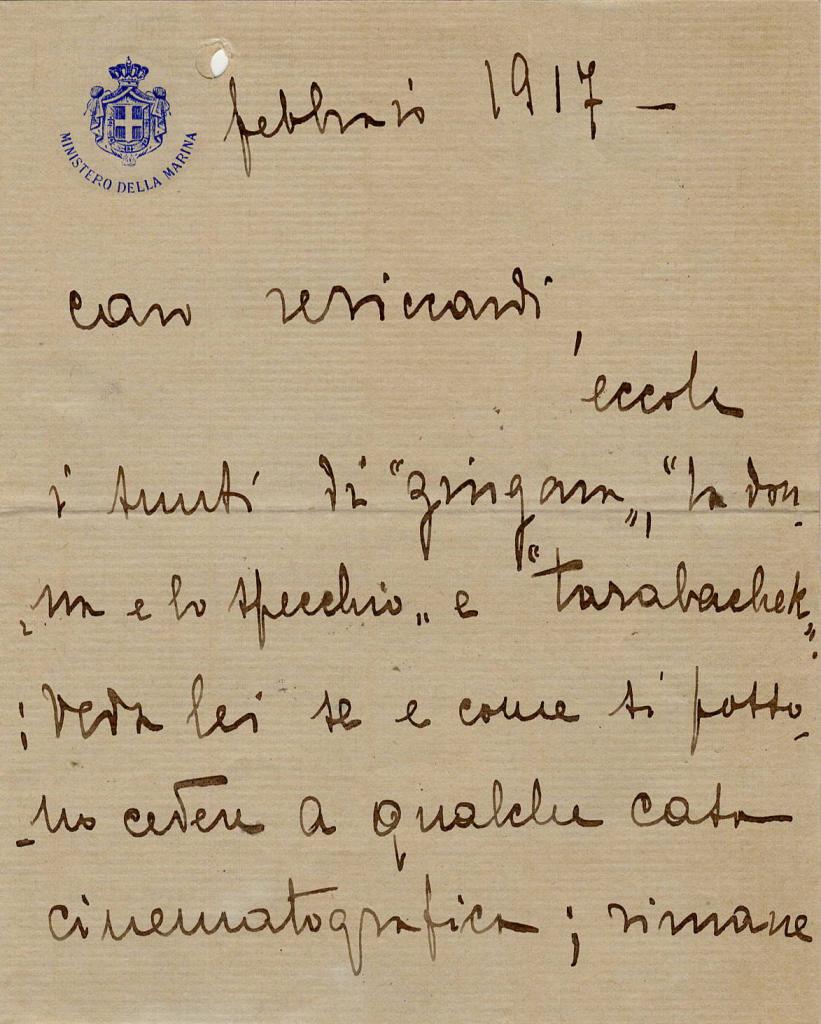 MINISTERO DELLA MARINA
febbraio 1917 —
caro rericcardi,
eccole
i sunti di "zingara", "la don-
-na e lo specchio" e "tarabachek".
; veda lei se e come si posso-
-no cedere a qualche casa
cinematografica ; rimane